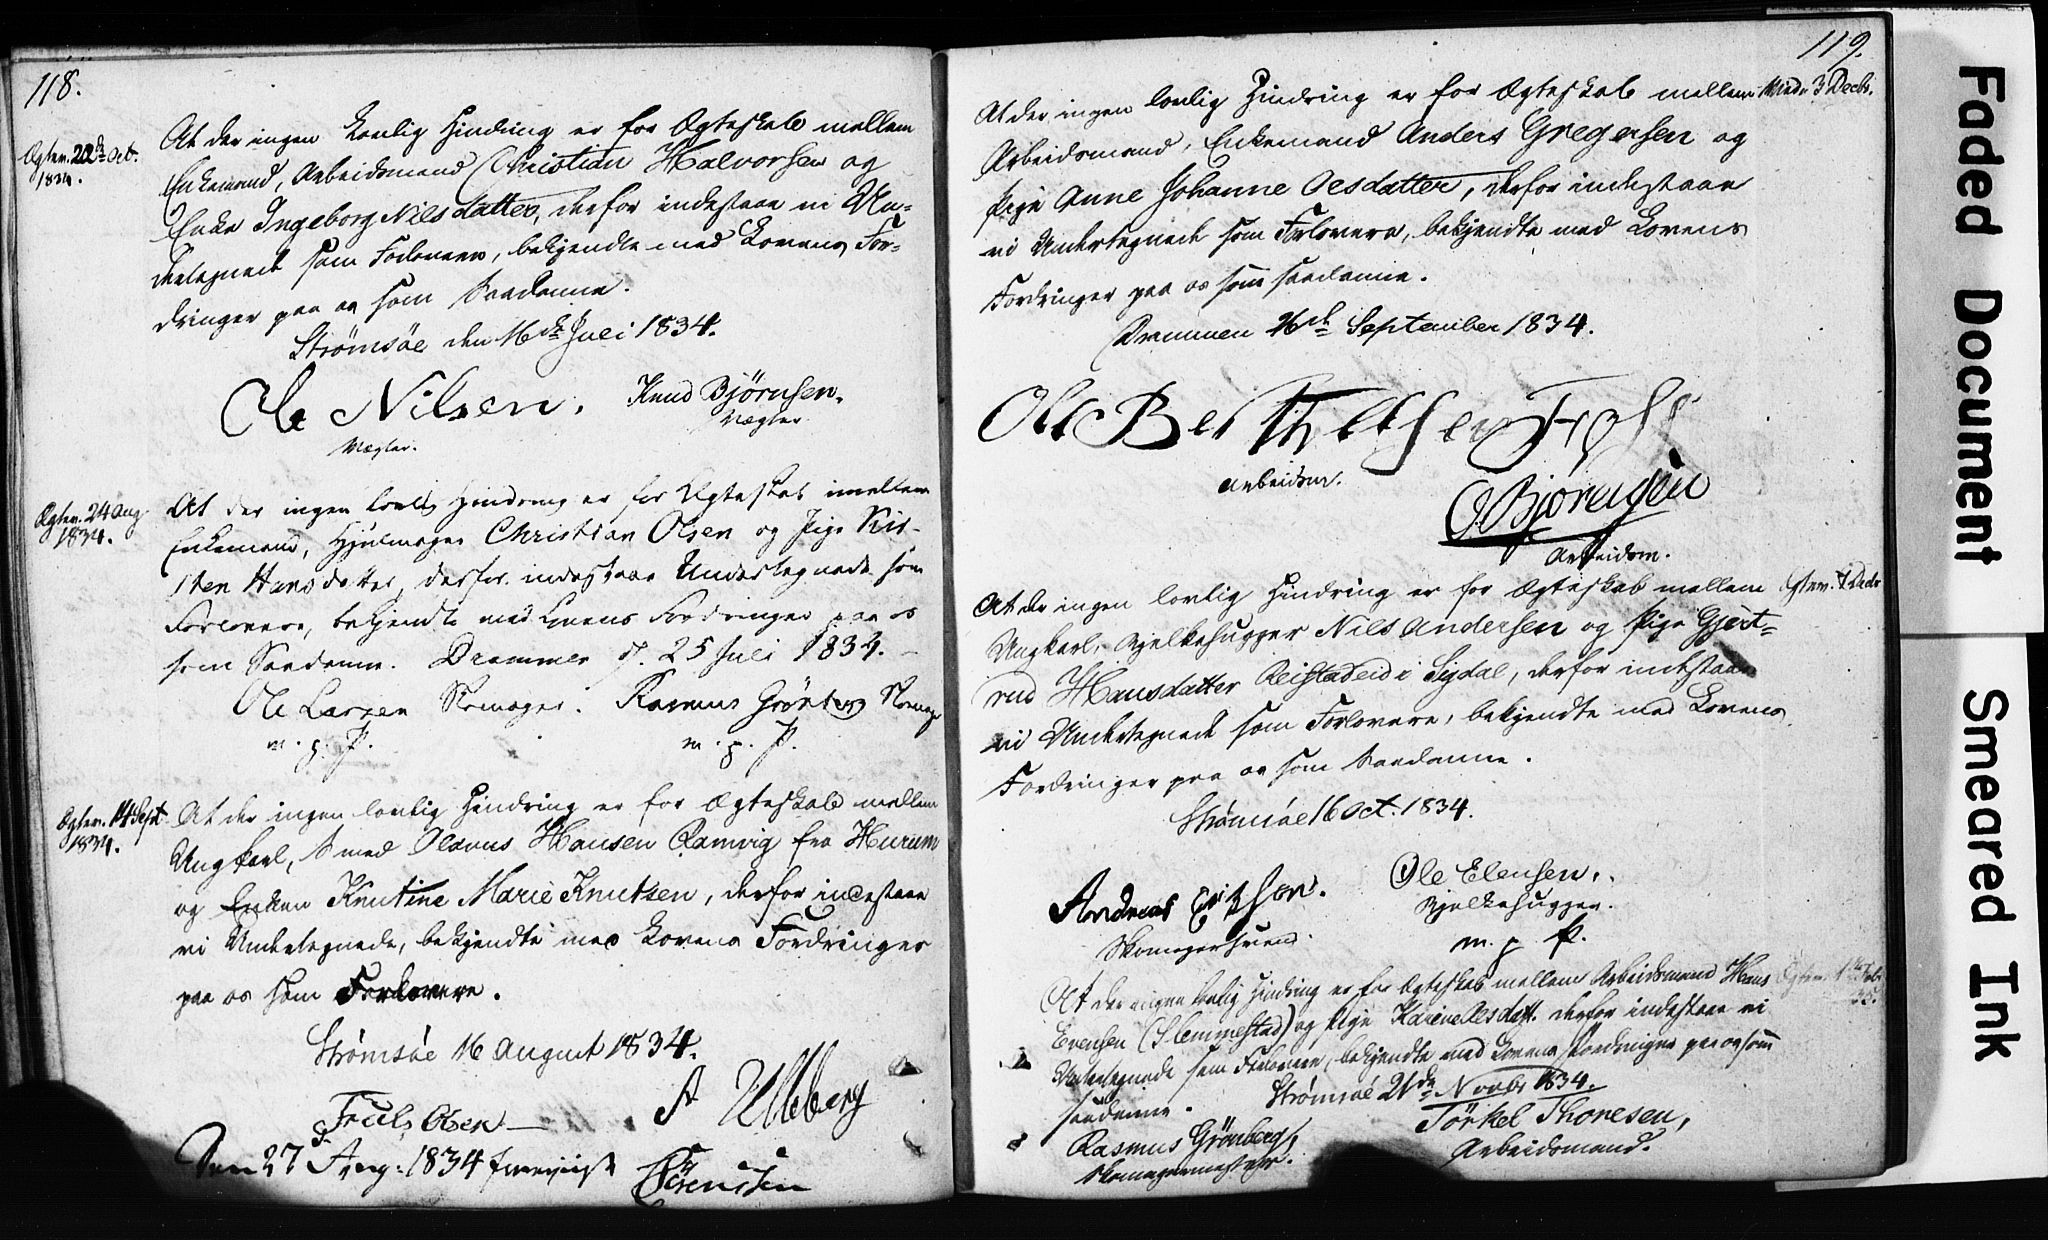 118.
Ægtev. 22de Oct.
1834.
At der ingen lovlig Hindring er for Ægteskab mellem
Enkemand, Arbeidsmand Christian Halvorsen og
Enke Ingeborg Nilsdatter, derfor indestaae vi Un-
dertegnede som Forlovere, bekjendte med Lovens For-
dringer paa os som Saadanne.
Strømsøe den 16de Juli 1834.
Ole Nilsen. Knud Bjørnsen.
Vægter. Vægter.
Ægtev. 24 Aug
1834.
At der ingen lovlig Hindring er for Ægteskab imellem
Enkemand, Hjulmager Christian Olsen og Pige Kir-
sten Hansdatter, derfor indestaae Undertegnede som
Forlovere, bekjendte med Lovens Fordringer paa os
som Saadanne. Drammen d. 25 Juli 1834. -
Ole Larsen Skomager. Rasmus Grönberg Skomager
m. p. P. m. p. P.
Ægtev. 14 Sept
1834.
At der ingen lovlig Hindring er for Ægteskab mellem
Ungkarl, Smed Olavus Hansen Ramvig fra Hurum
og Enken Knutine Marie Knutsen, derfor indestaae
vi Undertegnede, bekjendte med Lovens Fordringer
paa os som Forlovere.
Strømsøe 16 August 1834.
Truls Olsen A Ulleberg
Den 27 Aug: 1834 foreviist Sörenssen
119.
At der ingen lovlig Hindring er for Ægteskab mellem
Viede 3 Decb.
Arbeidsmand, Enkemand Anders Gregersen og
Pige Anne Johanne Olsdatter, derfor indestaae
vi Undertegnede som Forlovere, bekjendte med Lovens
Fordringer paa os som saadanne.
Drammen 26de September 1834.
Ole Berthelsen
Arbeidsm.
O. Bjørnsen
Arbeidsm.
At der ingen lovlig Hindring er for Ægteskab mellem
Ægtev. Decbr
Ungkarl, Bjelkehugger Nils Andersen og Pige Gjert-
rud Hansdatter Reistadeid i Sigdal, derfor indestaae
vi Undertegnede som Forlovere, bekjendte med Lovens
Fordringer paa os som Saadanne.
Strømsøe 16 Oct. 1834.
Andreas Erichsen. Ole Elensen.
Skomagersvend. Bjelkehugger.
m. p. P.
At der ingen lovlig Hindring er for Ægteskab mellem Arbeidsmand Hans
Ægtev. 1ste Febr
35.
Evensen (Slemmestad) og Pige Karine Olsdatt. derfor indestaae vi
Undertegnede som Forlovere, bekjendte med Lovens Fordringer paa os som
saadanne. Strømsøe 21de Novbr 1834.
Rasmus Grönberg, Törkel Thoresen,
Skomagermester. Arbeidsmand.
Faded Document
Smeared Ink